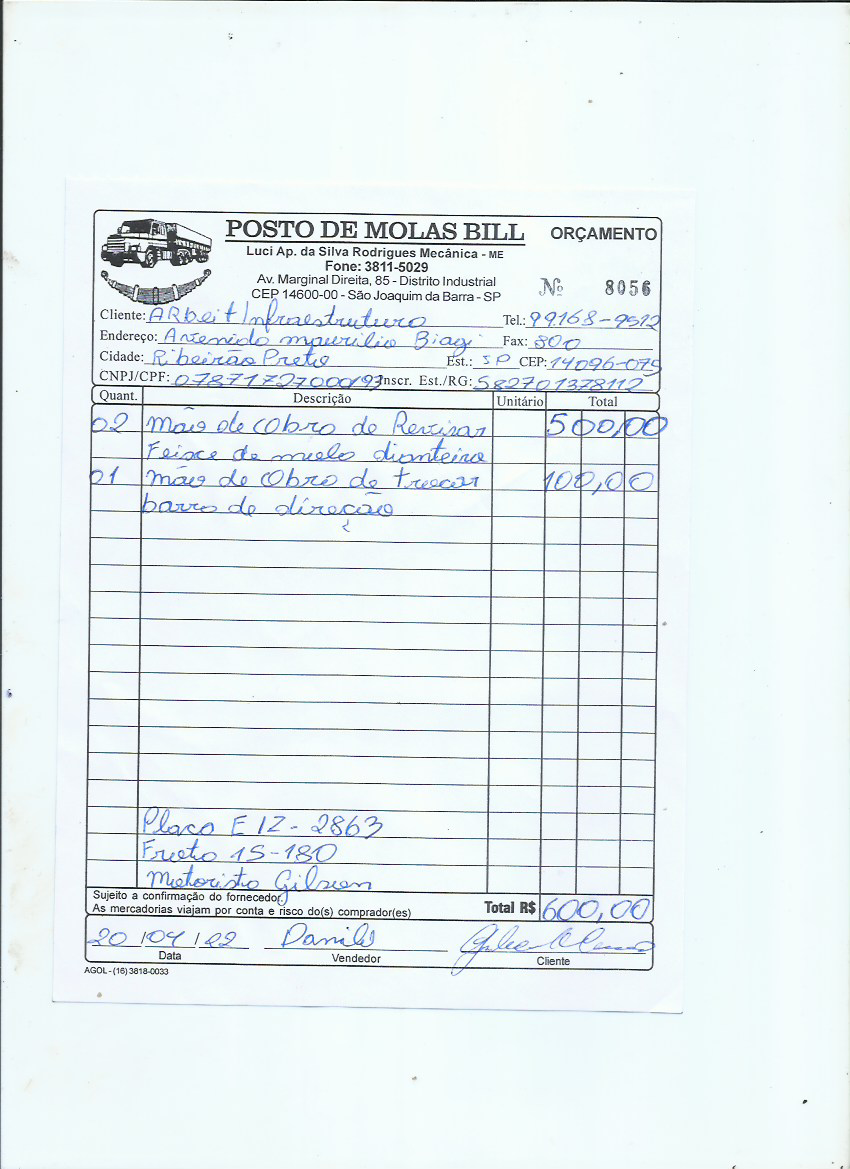 POSTO DE MOLAS BILL
ORÇAMENTO
Luci Ap. da Silva Rodrigues Mecânica - ME
Fone: 3811-5029
Av. Marginal Direita, 85 - Distrito Industrial
CEP 14600-00 - São Joaquim da Barra - SP
Nº 8056
Cliente: ARbeit Infraestruturo Tel.: 99168-9512
Endereço: Avenido maurilio Biagi Fax: 800
Cidade: Ribeirão Preto Est.: SP CEP: 14096-075
CNPJ/CPF: 07871727000193 Inscr. Est./RG: 582701378112
Quant. Descrição Unitário Total
02 Mão de Obro de Revisar 500,00
Feixe de molo dianteiro
01 mão de Obro de trocar 100,00
barro de direção
Placo EIZ-2863
Froto 15-180
Motoristo Gilson
Sujeito a confirmação do fornecedor
As mercadorias viajam por conta e risco do(s) comprador(es)
Total R$ 600,00
20/04/22 Danilo
Data Vendedor Cliente
AGOL - (16) 3818-0033